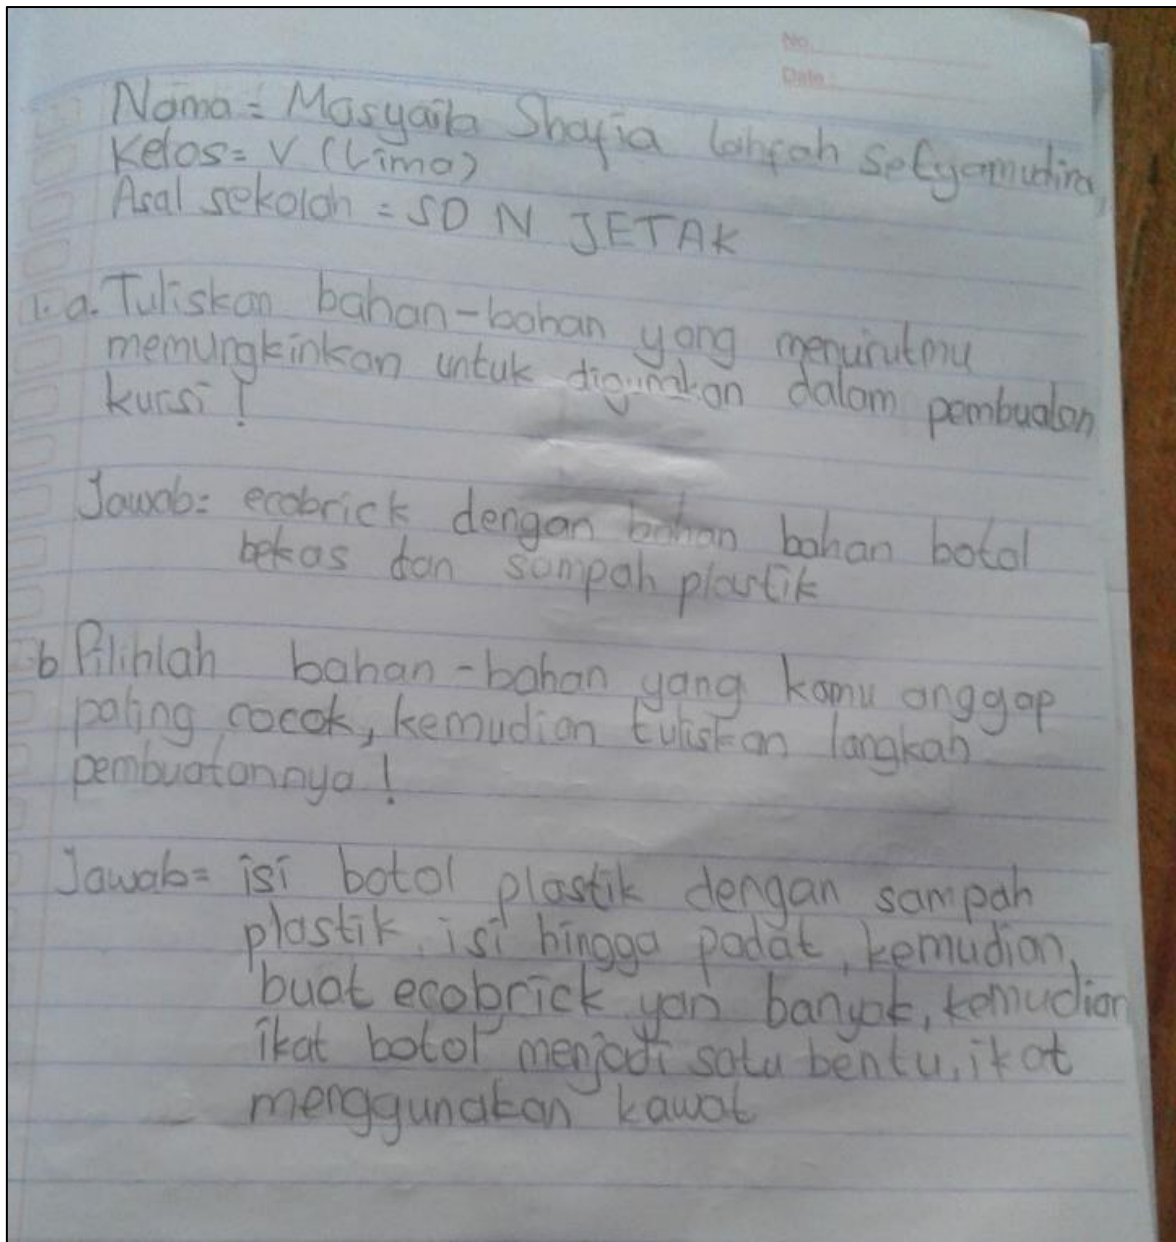 No.
Date :
Nama = Masyaila Shafia setyamudira
Kelas = V (Lima)
Asal sekolah = SD N JETAK
1. a. Tuliskan bahan-bahan yang menurutmu
memungkinkan untuk digunakan dalam pembuatan
kursi !
Jawab = ecobrick dengan bahan bahan botol
bekas dan sampah plastik
b Pilihlah bahan-bahan yang kamu anggap
paling cocok, kemudian tuliskan langkah
pembuatannya !
Jawab = isi botol plastik dengan sampah
plastik, isi hingga padat, kemudian,
buat ecobrick yan banyak, kemudian
ikat botol menjadi satu bentu, ikat
menggunakan kawat